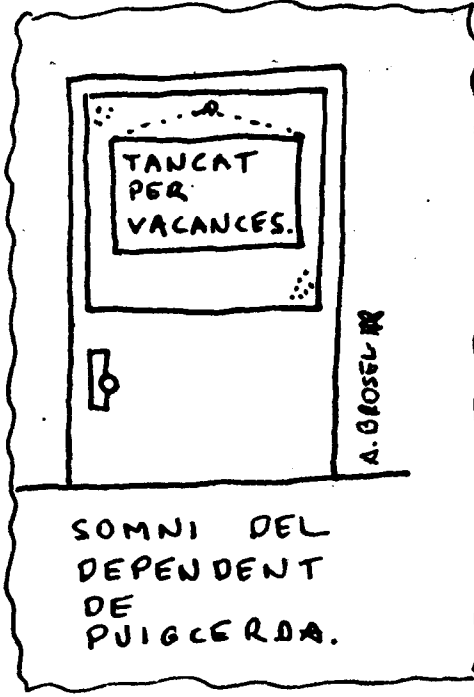 TANCAT
PER
VACANCES.
A. BROSEL
SOMNI DEL
DEPENDENT
DE
PUIGCERDA.